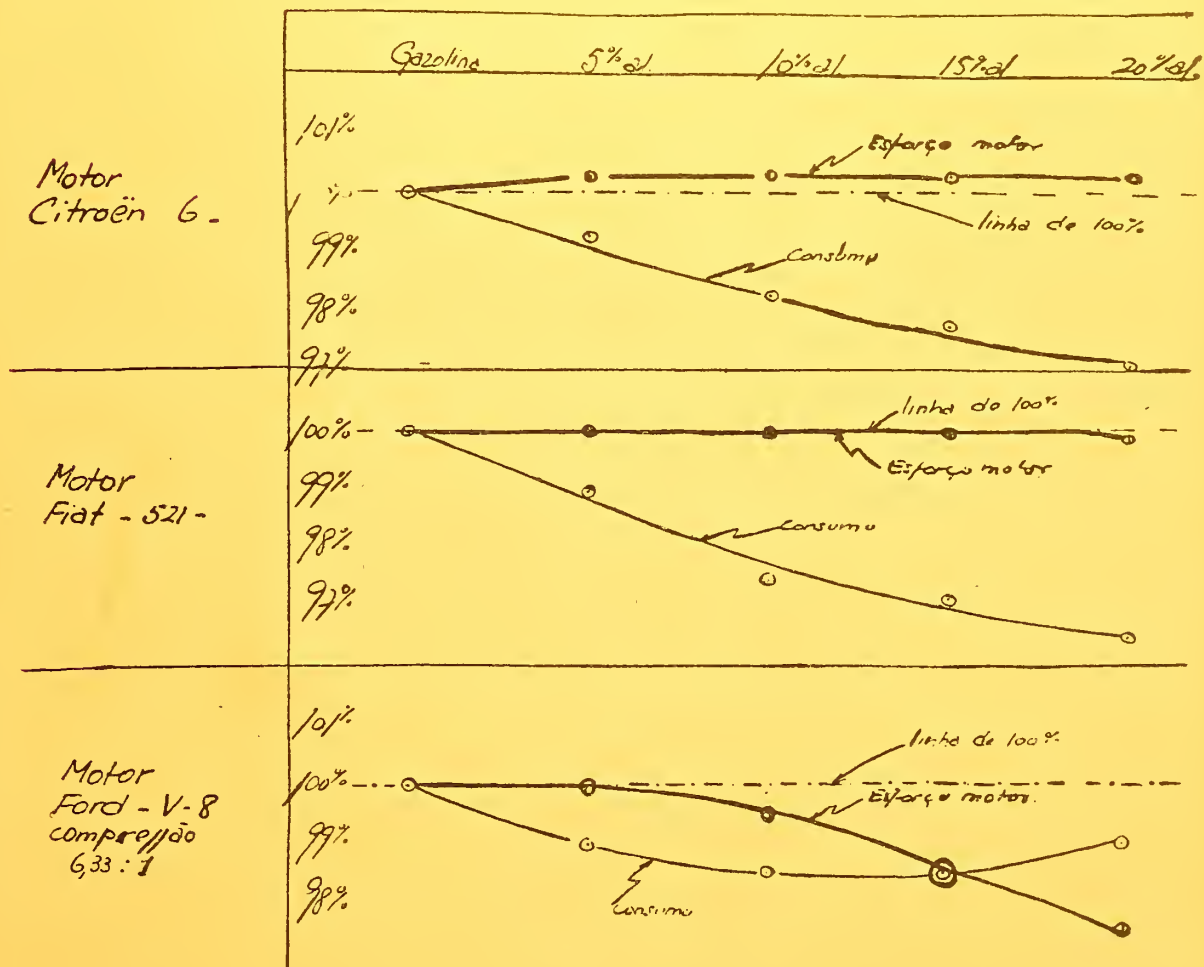 Gazolina 5% al. 10% al 15% al 20% al.
Motor
Citroën 6 -
101%
99%
98%
97%
Esforço motor
linha de 100%
Consumo
Motor
Fiat - 521 -
100%
99%
98%
97%
linha de 100%
Esforço motor
Consumo
Motor
Ford - V-8
compressão
6,33 : 1
101%
100%
99%
98%
linha de 100%
Esforço motor
Consumo